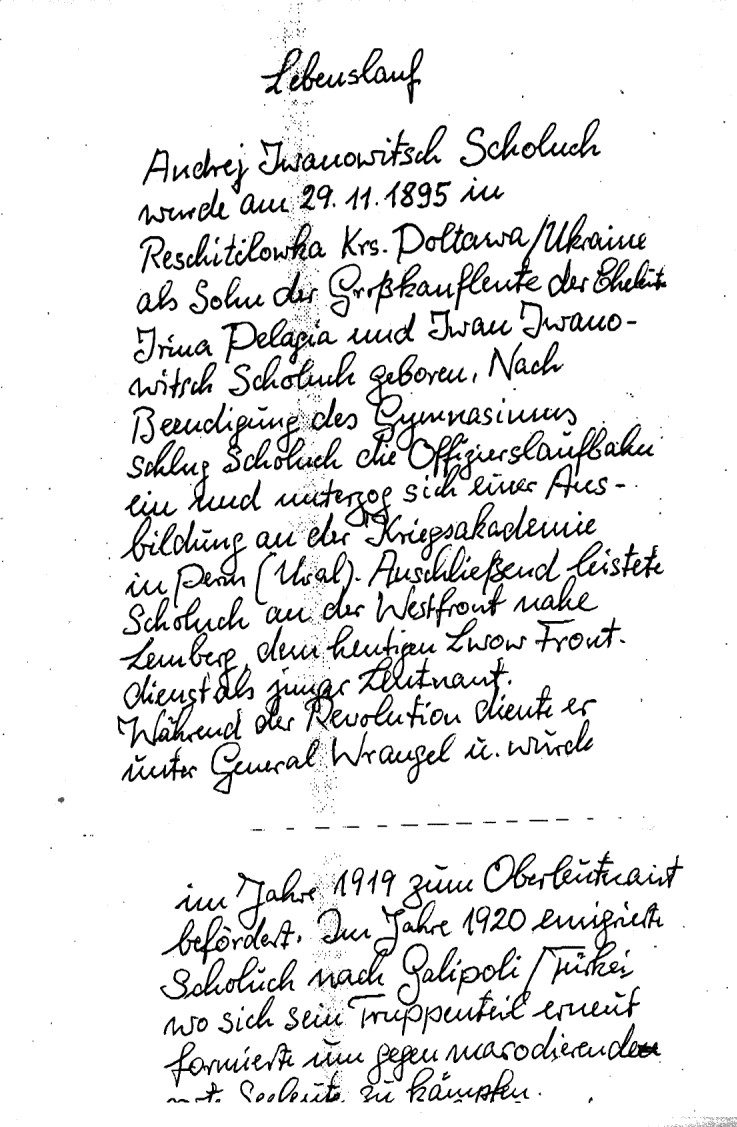 Lebenslauf
Andrej Iwanowitsch Scholuch
wurde am 29. 11. 1895 in
Reschitilowka Krs. Poltawa/Ukraine
als Sohn der Großkaufleute der Eheleute
Irina Pelagia und Iwan Iwano-
witsch Scholuch geboren. Nach
Beendigung des Gymnasiums
schlug Scholuch die Offizierslaufbahn
ein und unterzog sich einer Aus-
bildung an der Kriegsakademie
in Perm (Ural). Anschließend leistete
Scholuch an der Westfront nahe
Lemberg, dem heutigen Lwow Front-
dienst als junger Leutnant.
Während der Revolution diente er
unter General Wrangel u. wurde
im Jahre 1919 zum Oberleutnant
befördert. Im Jahre 1920 emigrierte
Scholuch nach Galipoli/Türkei
wo sich sein Truppenteil erneut
formierte um gegen marodierenden
zu kämpfen.